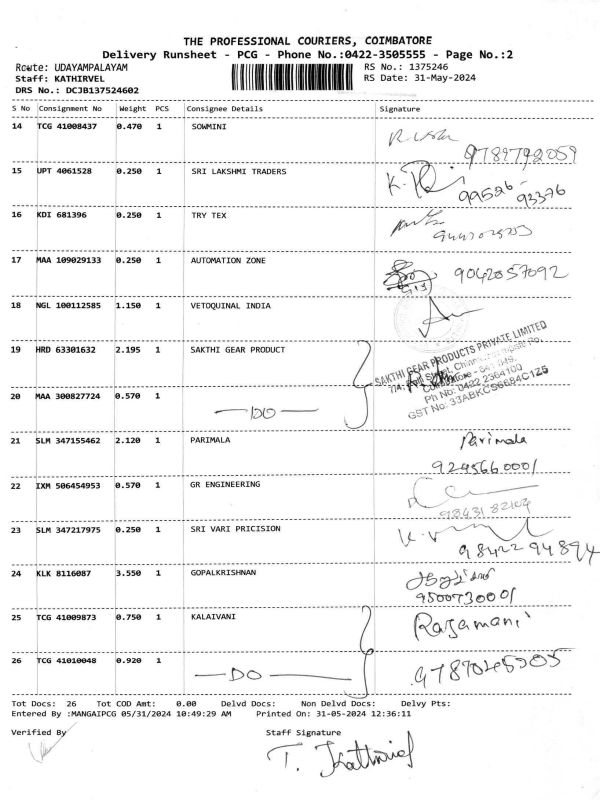 THE PROFESSIONAL COURIERS, COIMBATORE
Delivery Runsheet - PCG - Phone No.:0422-3505555 - Page No.:2
Route: UDAYAMPALAYAM RS No.: 1375246
Staff: KATHIRVEL RS Date: 31-May-2024
DRS No.: DCJB137524602
S No Consignment No Weight PCS Consignee Details Signature
14 TCG 41008437 0.470 1 SOWMINI
9789792059
15 UPT 4061528 0.250 1 SRI LAKSHMI TRADERS
99526-93376
16 KDI 681396 0.250 1 TRY TEX
17 MAA 109029133 0.250 1 AUTOMATION ZONE 9042057092
18 NGL 100112585 1.150 1 VETOQUINAL INDIA
19 HRD 63301632 2.195 1 SAKTHI GEAR PRODUCT
SAKTHI GEAR PRODUCTS PRIVATE LIMITED
Ph No: 0422 2364100
GST No: 33ABKCS6684C1Z5
20 MAA 300827724 0.570 1
—DO—
21 SLM 347155462 2.120 1 PARIMALA Parimala
9245660001
22 IXM 506454953 0.570 1 GR ENGINEERING
98431 82104
23 SLM 347217975 0.250 1 SRI VARI PRICISION
98422 94894
24 KLK 8116087 3.550 1 GOPALKRISHNAN
9500730001
25 TCG 41009873 0.750 1 KALAIVANI Rajamani
26 TCG 41010048 0.920 1
—DO— 9787045505
Tot Docs: 26 Tot COD Amt: 0.00 Delvd Docs: Non Delvd Docs: Delvy Pts:
Entered By :MANGAIPCG 05/31/2024 10:49:29 AM Printed On: 31-05-2024 12:36:11
Verified By Staff Signature